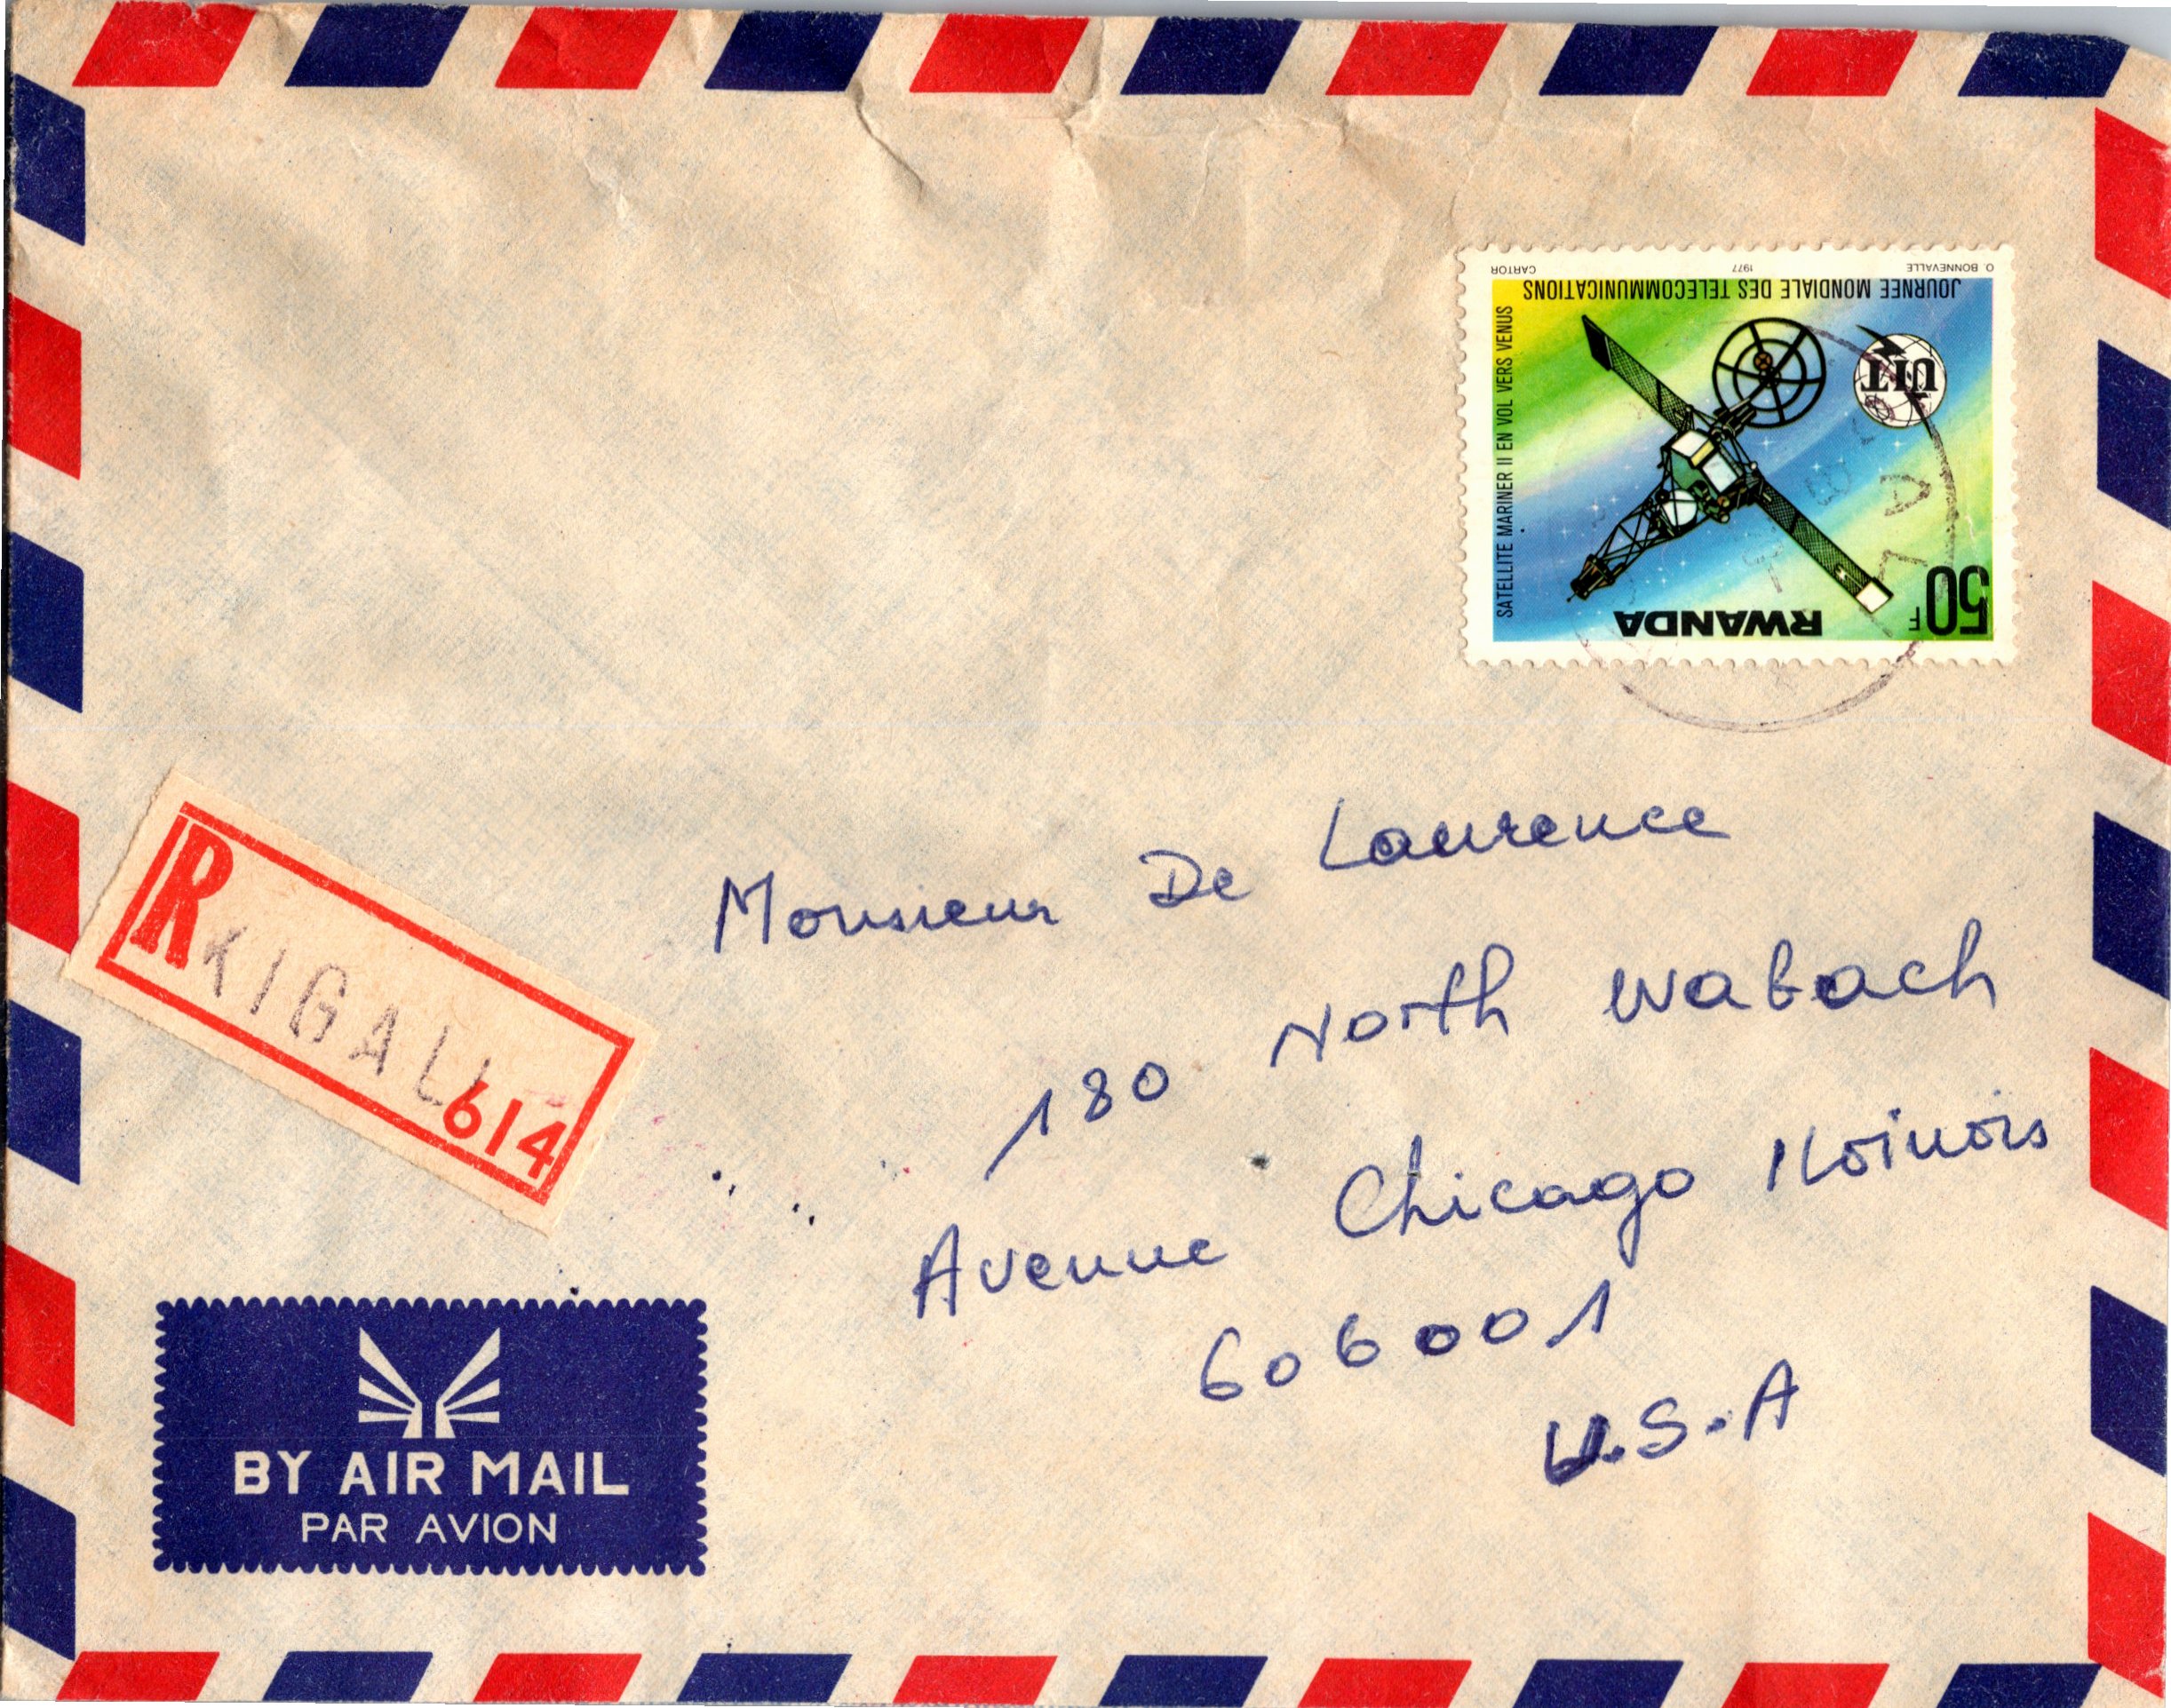 O. BONNEVALLE 1977 CARTOR
JOURNEE MONDIALE DES TELECOMMUNICATIONS
SATELLITE MARINER II EN VOL VERS VENUS
UIT
RWANDA
50F
R KIGALI
614
Monsieur De Laurence
180 North Wabach
Avenue Chicago Iloinois
606001
U.S.A
BY AIR MAIL
PAR AVION